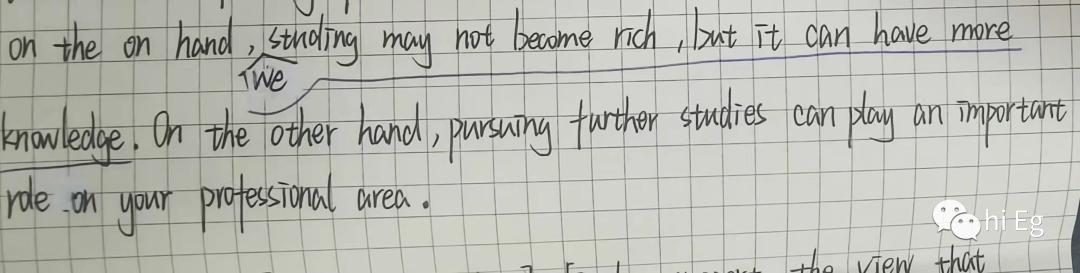 on the on hand, studing may not become rich, but it can have more
we
knowledge. On the other hand, pursuing further studies can play an important
role on your professional area.
the view that
hi Eg